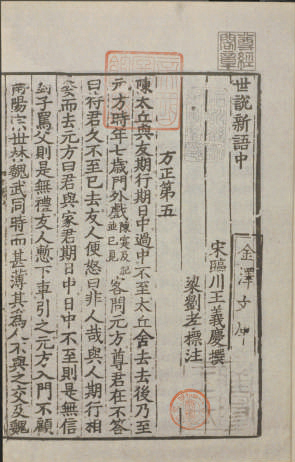 世說新語中
宋臨川王義慶撰
梁劉孝標注
方正第五
陳太丘與友期行期日中過中不至太丘舍去去後乃至
元方時年七歲門外戲陳寔及紀並已見客問元方尊君在不答
曰待君久不至已去友人便怒曰非人哉與人期行相
委而去元方曰君與家君期日中日中不至則是無信
對子罵父則是無禮友人慙下車引之元方入門不顧
南陽宗世林魏武同時而甚薄其為人不與之交及魏
金澤文庫